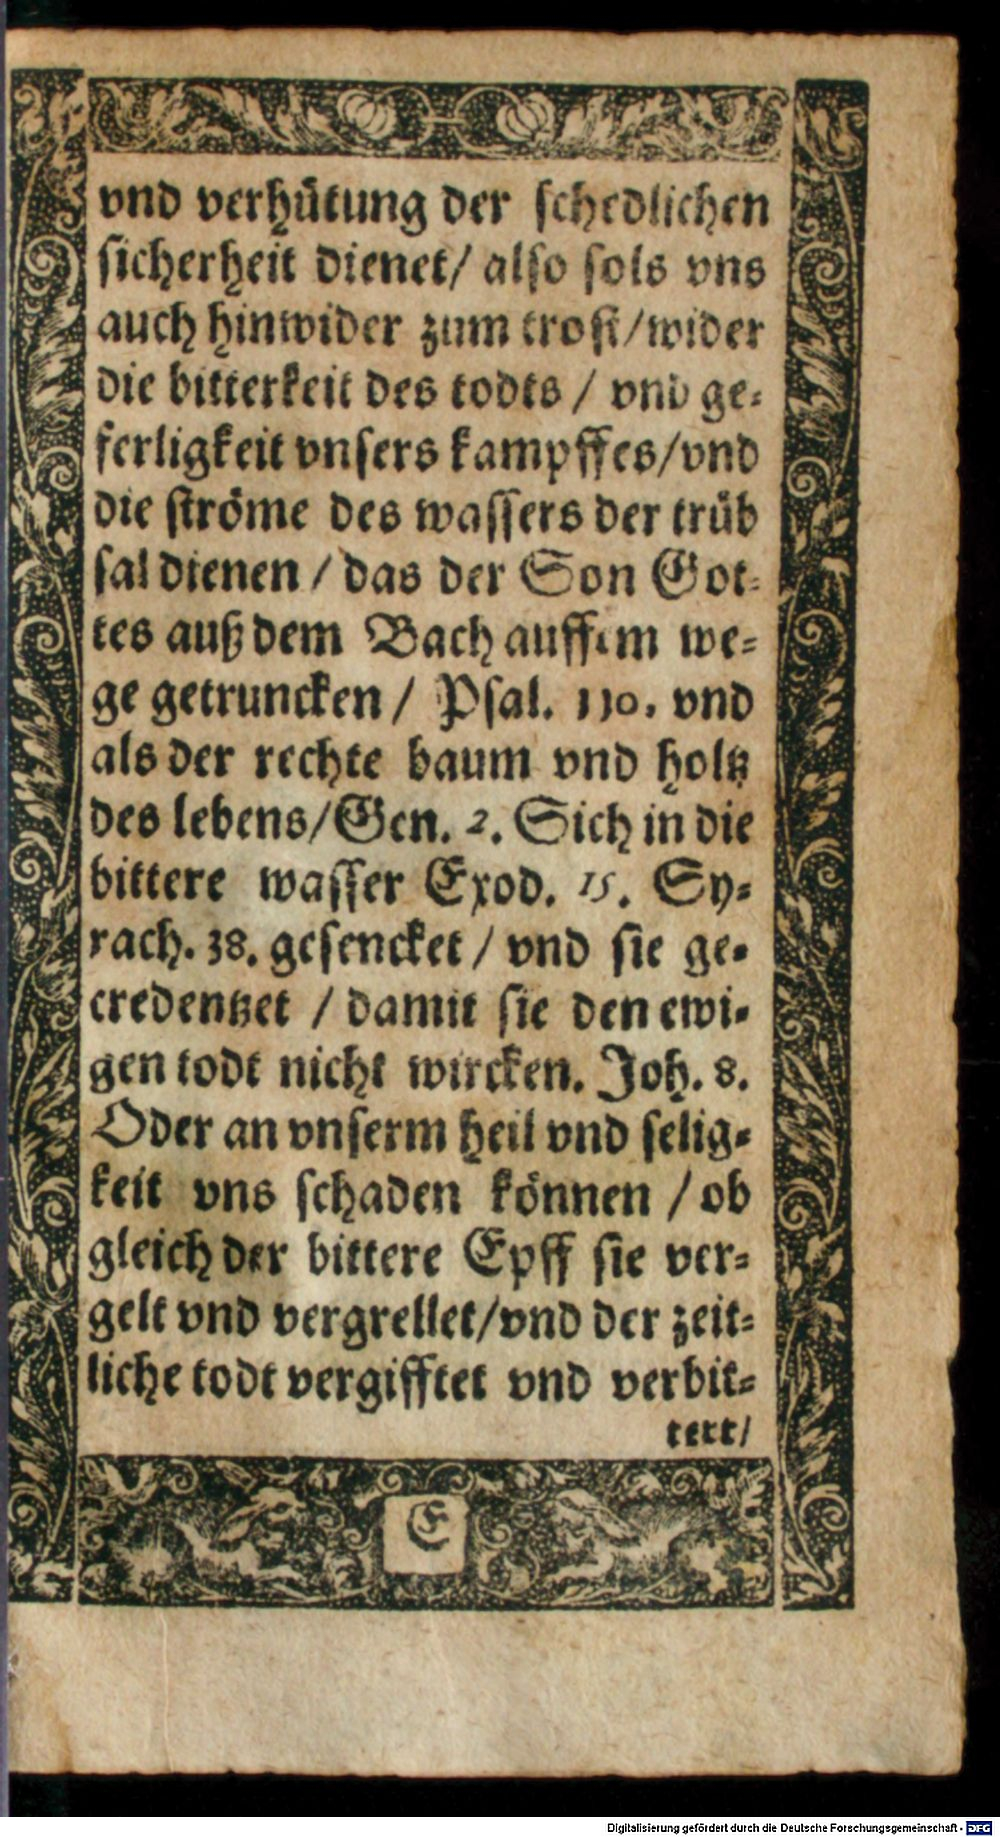 vnd verhütung der schedlichen
sicherheit dienet/ also sols vns
auch hinwider zum trost/wider
die bitterkeit des todts / vnd ge-
ferligkeit vnsers kampffes/vnd
die ströme des wassers der trüb
sal dienen / das der Son Got-
tes auß dem Bach auffem we-
ge getruncken / Psal. 110. vnd
als der rechte baum vnd holtz
des lebens/Gen. 2. Sich in die
bittere wasser Exod. 15. Sy-
rach. 38. gesencket / vnd sie ge-
credentzet / damit sie den ewi-
gen todt nicht wircken. Joh. 8.
Oder an vnserm heil vnd selig-
keit vns schaden können / ob
gleich der bittere Epff sie ver-
gelt vnd vergrellet/vnd der zeit-
liche todt vergifftet vnd verbit-
tert/
E
Digitalisierung gefördert durch die Deutsche Forschungsgemeinschaft - DFG